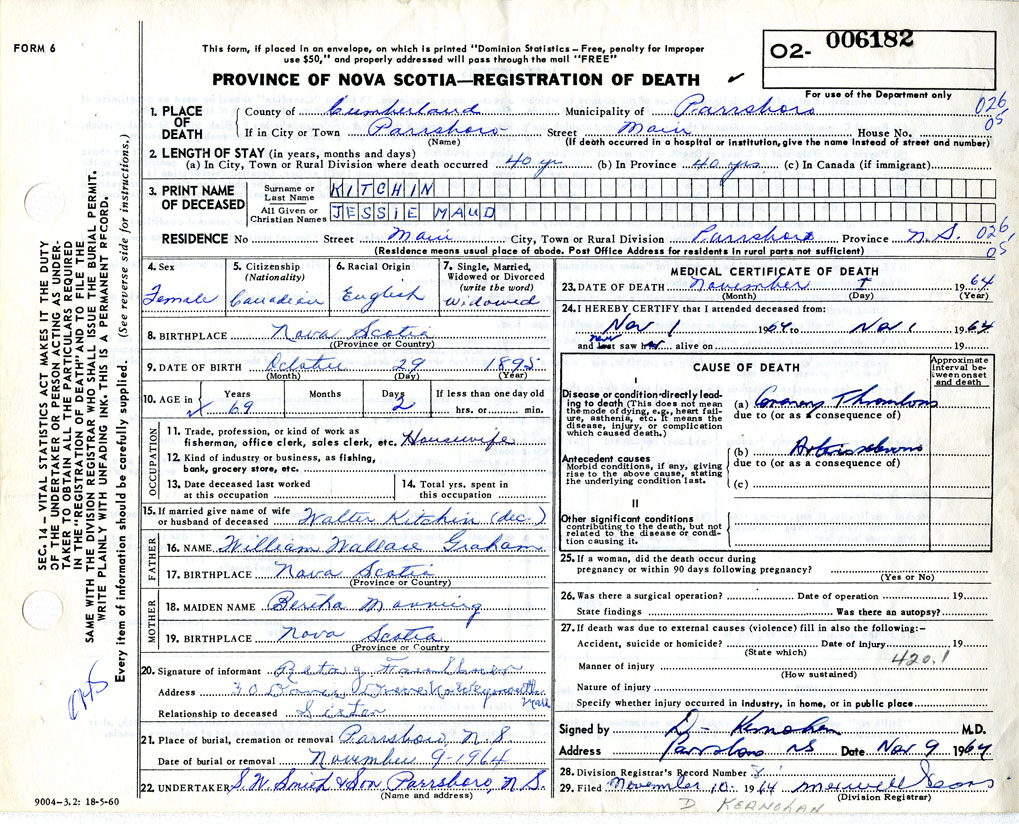 FORM 6
This form, if placed in an envelope, on which is printed "Dominion Statistics – Free, penalty for improper
use $50," and properly addressed will pass through the mail "FREE"
PROVINCE OF NOVA SCOTIA—REGISTRATION OF DEATH ✓
O2- 006182
For use of the Department only
1. PLACE OF DEATH
County of Cumberland Municipality of Parrsboro 026
If in City or Town Parrsboro Street Main House No. 05
(Name) (If death occurred in a hospital or institution, give the name instead of street and number)
2. LENGTH OF STAY (in years, months and days)
(a) In City, Town or Rural Division where death occurred 40 yr (b) In Province 40 yrs. (c) In Canada (if immigrant)
3. PRINT NAME OF DECEASED
Surname or Last Name KITCHIN
All Given or Christian Names JESSIE MAUD
RESIDENCE No Street Main City, Town or Rural Division Parrsboro Province N.S. 026
(Residence means usual place of abode. Post Office Address for residents in rural parts not sufficient) 05
4. Sex
Female
5. Citizenship
(Nationality)
Canadian
6. Racial Origin
English
7. Single, Married,
Widowed or Divorced
(write the word)
Widowed
8. BIRTHPLACE Nova Scotia
(Province or Country)
9. DATE OF BIRTH October 29 1895
(Month) (Day) (Year)
10. AGE in Years Months Days If less than one day old
69 2 hrs. or min.
OCCUPATION
11. Trade, profession, or kind of work as
fisherman, office clerk, sales clerk, etc. Housewife
12. Kind of industry or business, as fishing,
bank, grocery store, etc.
13. Date deceased last worked
at this occupation
14. Total yrs. spent in
this occupation
15. If married give name of wife
or husband of deceased Walter Kitchin (dec.)
FATHER
16. NAME William Wallace Graham
17. BIRTHPLACE Nova Scotia
(Province or Country)
MOTHER
18. MAIDEN NAME Bertha Manning
19. BIRTHPLACE Nova Scotia
(Province or Country
20. Signature of informant
Address 30
Relationship to deceased Sister
21. Place of burial, cremation or removal Parrsboro, N.S
Date of burial or removal November 9-1964
22. UNDERTAKER S.W. Smith & Son, Parrsboro, N.S.
(Name and address)
9004–3.2: 18-5-60
MEDICAL CERTIFICATE OF DEATH
23. DATE OF DEATH November 1964
(Month) (Day) (Year)
24. I HEREBY CERTIFY that I attended deceased from:
Nov 1 1964 to Nov 1 1964
and last saw h alive on 19
never
CAUSE OF DEATH
Approximate
interval be-
tween onset
and death
I
Disease or condition directly lead-
ing to death (This does not mean
the mode of dying, e.g., heart fail-
ure, asthenia, etc. It means the
disease, injury, or complication
which caused death.)
(a) Coronary Thrombosis
due to (or as a consequence of)
Antecedent causes
Morbid conditions, if any, giving
rise to the above cause, stating
the underlying condition last.
(b) Arteriosclerosis
due to (or as a consequence of)
(c)
II
Other significant conditions
contributing to the death, but not
related to the disease or condi-
tion causing it.
25. If a woman, did the death occur during
pregnancy or within 90 days following pregnancy?
(Yes or No)
26. Was there a surgical operation? Date of operation 19
State findings Was there an autopsy?
27. If death was due to external causes (violence) fill in also the following:–
Accident, suicide or homicide? Date of injury 19
(State which)
420.1
Manner of injury
(How sustained)
Nature of injury
Specify whether injury occurred in industry, in home, or in public place
Signed by D. Kernohan M.D.
Address Parrsboro NS Date Nov 9 1964
28. Division Registrar's Record Number
29. Filed November 10. 1964
(Division Registrar)
D KERNOHAN
SEC. 14 – VITAL STATISTICS ACT MAKES IT THE DUTY
OF THE UNDERTAKER OR PERSON ACTING AS UNDER-
TAKER TO OBTAIN ALL THE PARTICULARS REQUIRED
IN THE "REGISTRATION OF DEATH" AND TO FILE THE
SAME WITH THE DIVISION REGISTRAR WHO SHALL ISSUE THE BURIAL PERMIT.
WRITE PLAINLY WITH UNFADING INK. THIS IS A PERMANENT RECORD.
Every item of information should be carefully supplied. (See reverse side for instructions.)